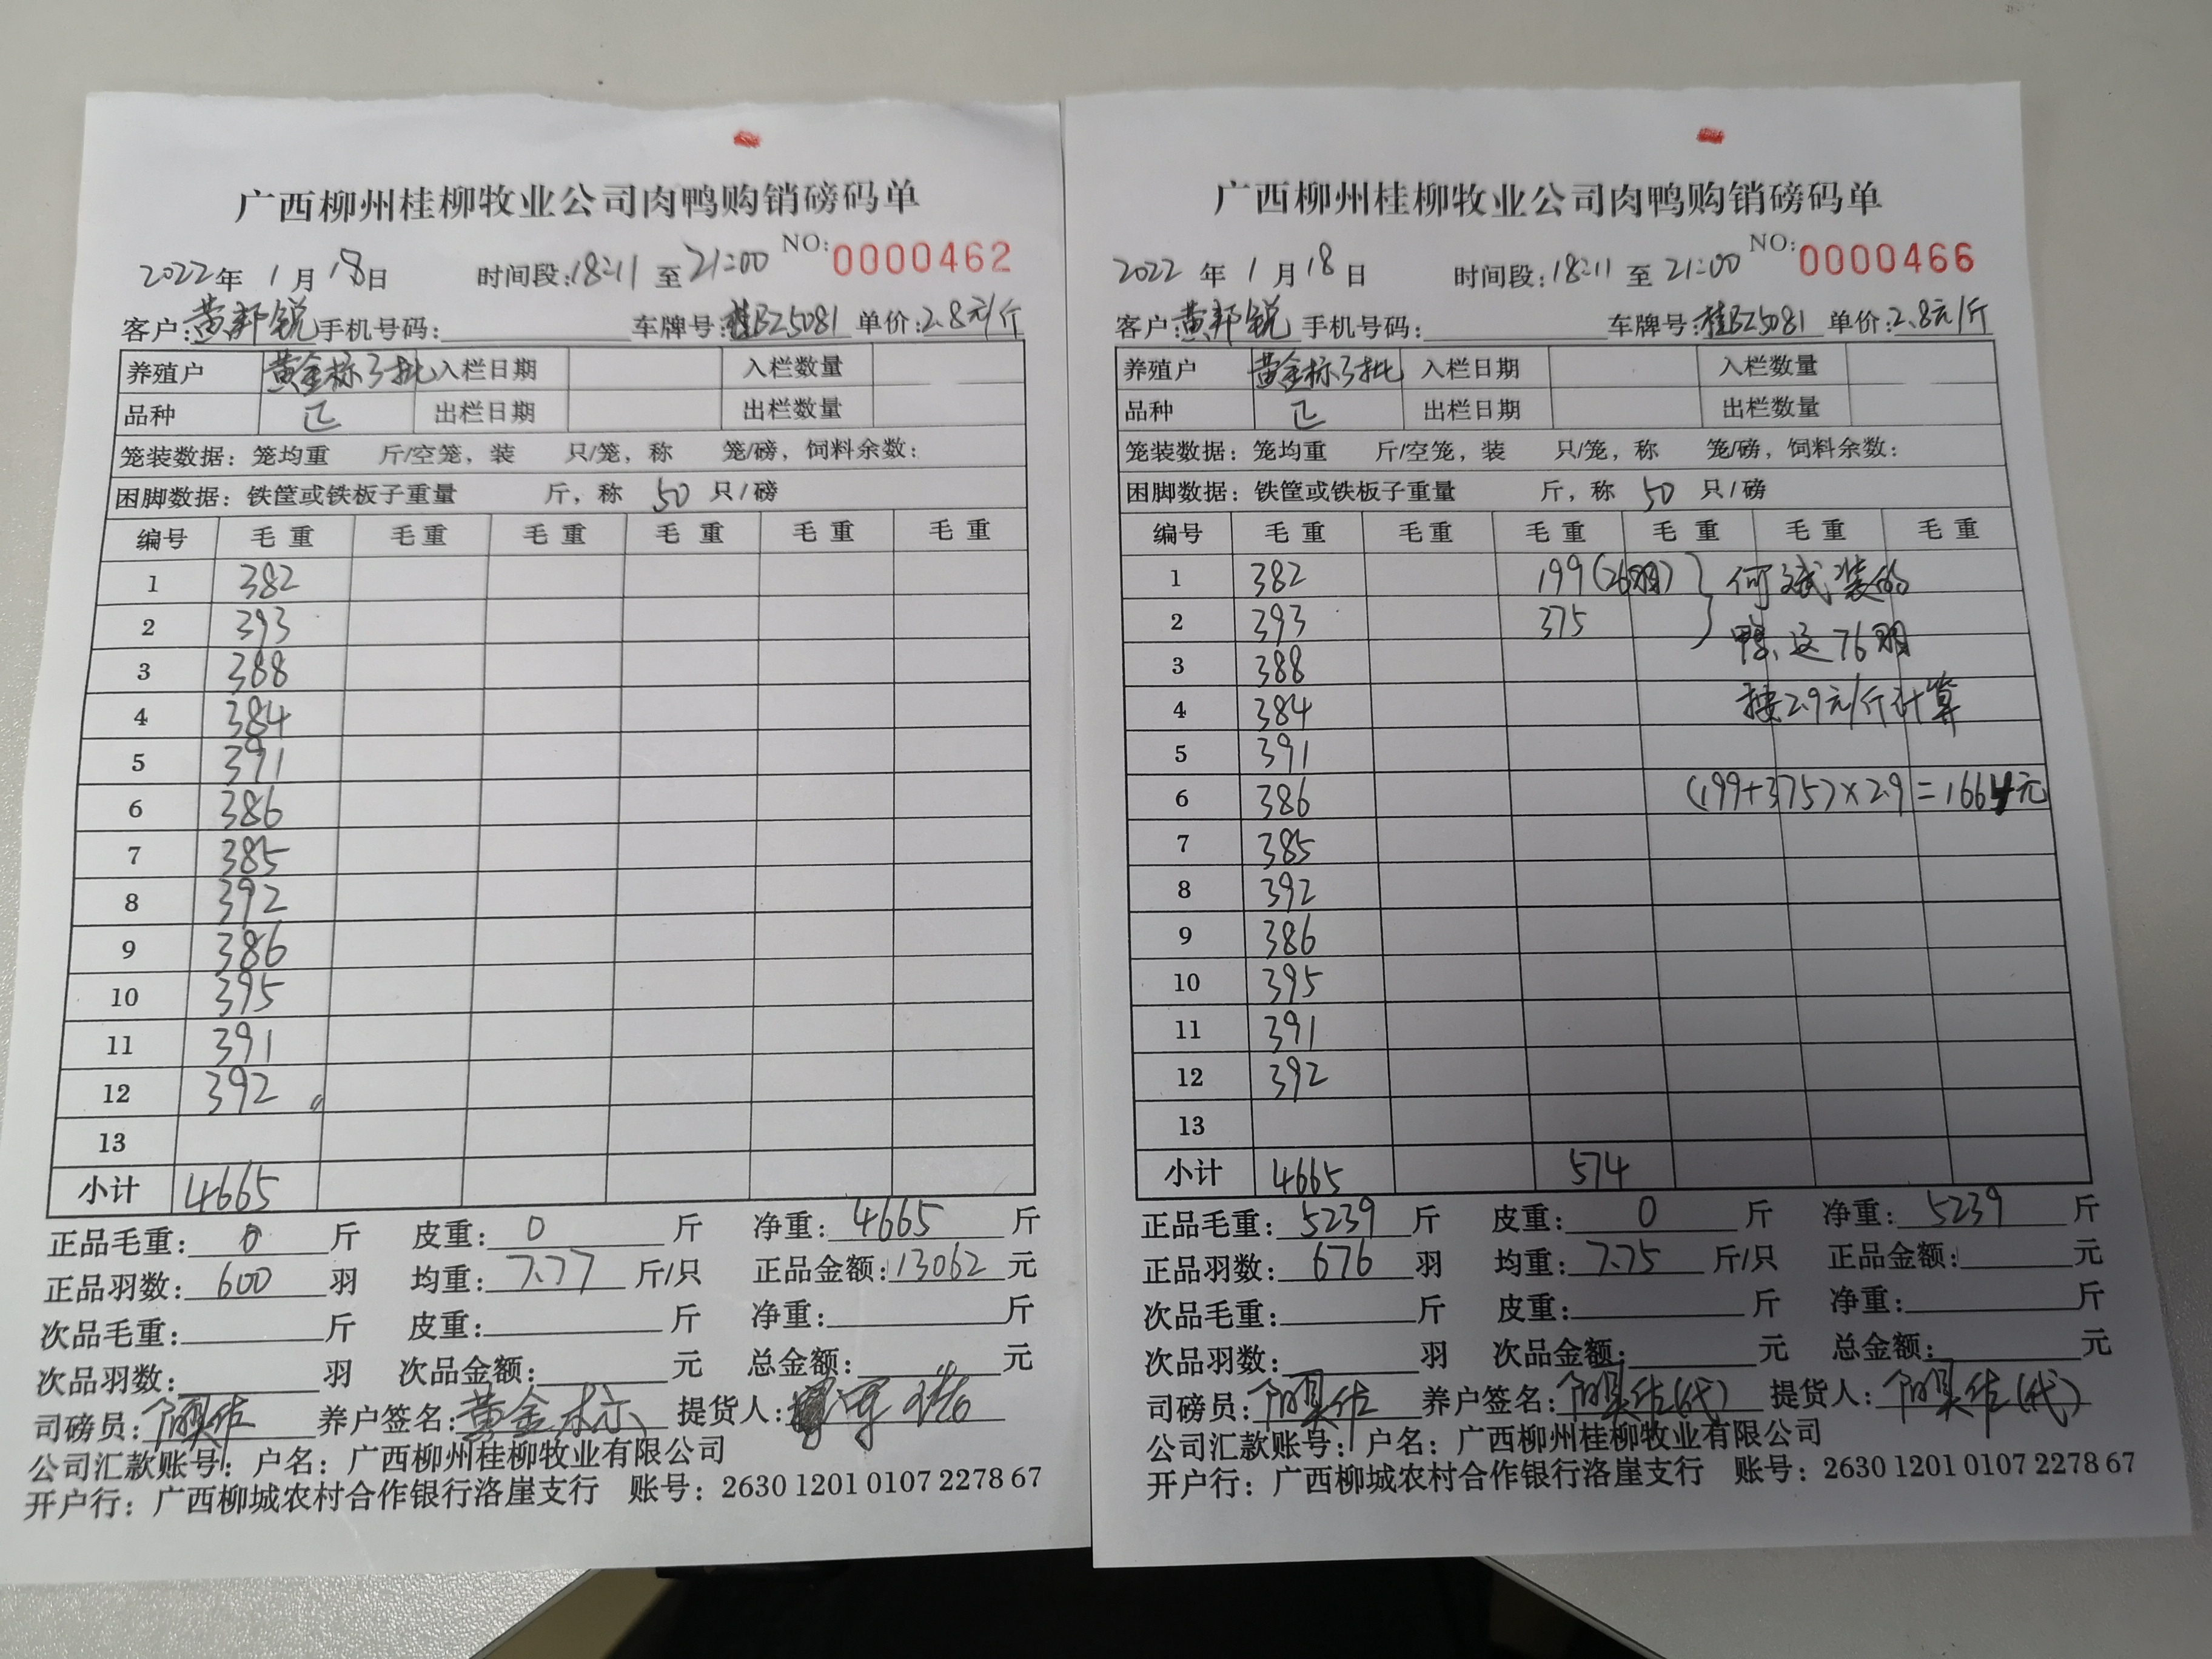 广西柳州桂柳牧业公司肉鸭购销磅码单
NO:0000462
2022年 1月 18日 时间段:18:11 至 21:00
客户:黄邦锐 手机号码: 车牌号:桂BZ5081 单价:2.8元/斤
养殖户 黄金标3批 入栏日期 入栏数量
品种 出栏日期 出栏数量
笼装数据:笼均重 斤/空笼,装 只/笼,称 笼/磅,饲料余数:
困脚数据:铁筐或铁板子重量 斤,称 50 只/磅
编号 毛重 毛重 毛重 毛重 毛重 毛重
1 382
2 393
3 388
4 384
5 391
6 386
7 385
8 392
9 386
10 395
11 391
12 392
13
小计 4665
正品毛重:0斤 皮重:0斤 净重:4665斤
正品羽数:600羽 均重:7.77斤/只 正品金额:13062元
次品毛重: 斤 皮重: 斤 净重: 斤
次品羽数: 羽 次品金额: 元 总金额: 元
司磅员: 养户签名:黄金标 提货人:
公司汇款账号:户名:广西柳州桂柳牧业有限公司
开户行:广西柳城农村合作银行洛崖支行 账号:2630 1201 0107 2278 67
广西柳州桂柳牧业公司肉鸭购销磅码单
NO:0000466
2022年 1月 18日 时间段:18:11 至 21:00
客户:黄邦锐 手机号码: 车牌号:桂BZ5081 单价:2.8元/斤
养殖户 黄金标3批 入栏日期 入栏数量
品种 出栏日期 出栏数量
笼装数据:笼均重 斤/空笼,装 只/笼,称 笼/磅,饲料余数:
困脚数据:铁筐或铁板子重量 斤,称 50 只/磅
编号 毛重 毛重 毛重 毛重 毛重 毛重
1 382 199(26羽) 何斌装的
2 393 375 鸭,这76羽
3 388
4 384 按2.9元/斤计算
5 391
6 386 (199+375)×2.9=1664元
7 385
8 392
9 386
10 395
11 391
12 392
13
小计 4665 574
正品毛重:5239斤 皮重:0斤 净重:5239斤
正品羽数:676羽 均重:7.75斤/只 正品金额: 元
次品毛重: 斤 皮重: 斤 净重: 斤
次品羽数: 羽 次品金额: 元 总金额: 元
司磅员: 养户签名:(代) 提货人:(代)
公司汇款账号:户名:广西柳州桂柳牧业有限公司
开户行:广西柳城农村合作银行洛崖支行 账号:2630 1201 0107 2278 67